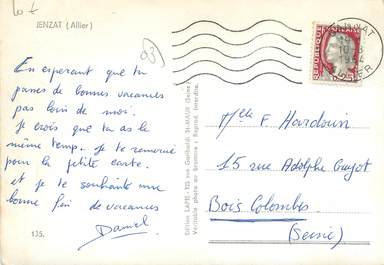 JENZAT (Allier)
En espérant que tu
passes de bonnes vacances
pas loin de moi.
Je crois que tu as le
même temps. Je te remercie
pour la petite carte.
et je te souhaite une
bonne fin de vacances
Daniel
135.
Edition LAPIE - 123 rue Garibaldi St-MAUR (Seine)
Véritable photo au bromure - Reprod. interdite.
REPUBLIQUE FRANÇAISE
ALLIER
Melle F. Hardouin
15 rue Adolphe Guyot
Bois Colombes
(Seine)